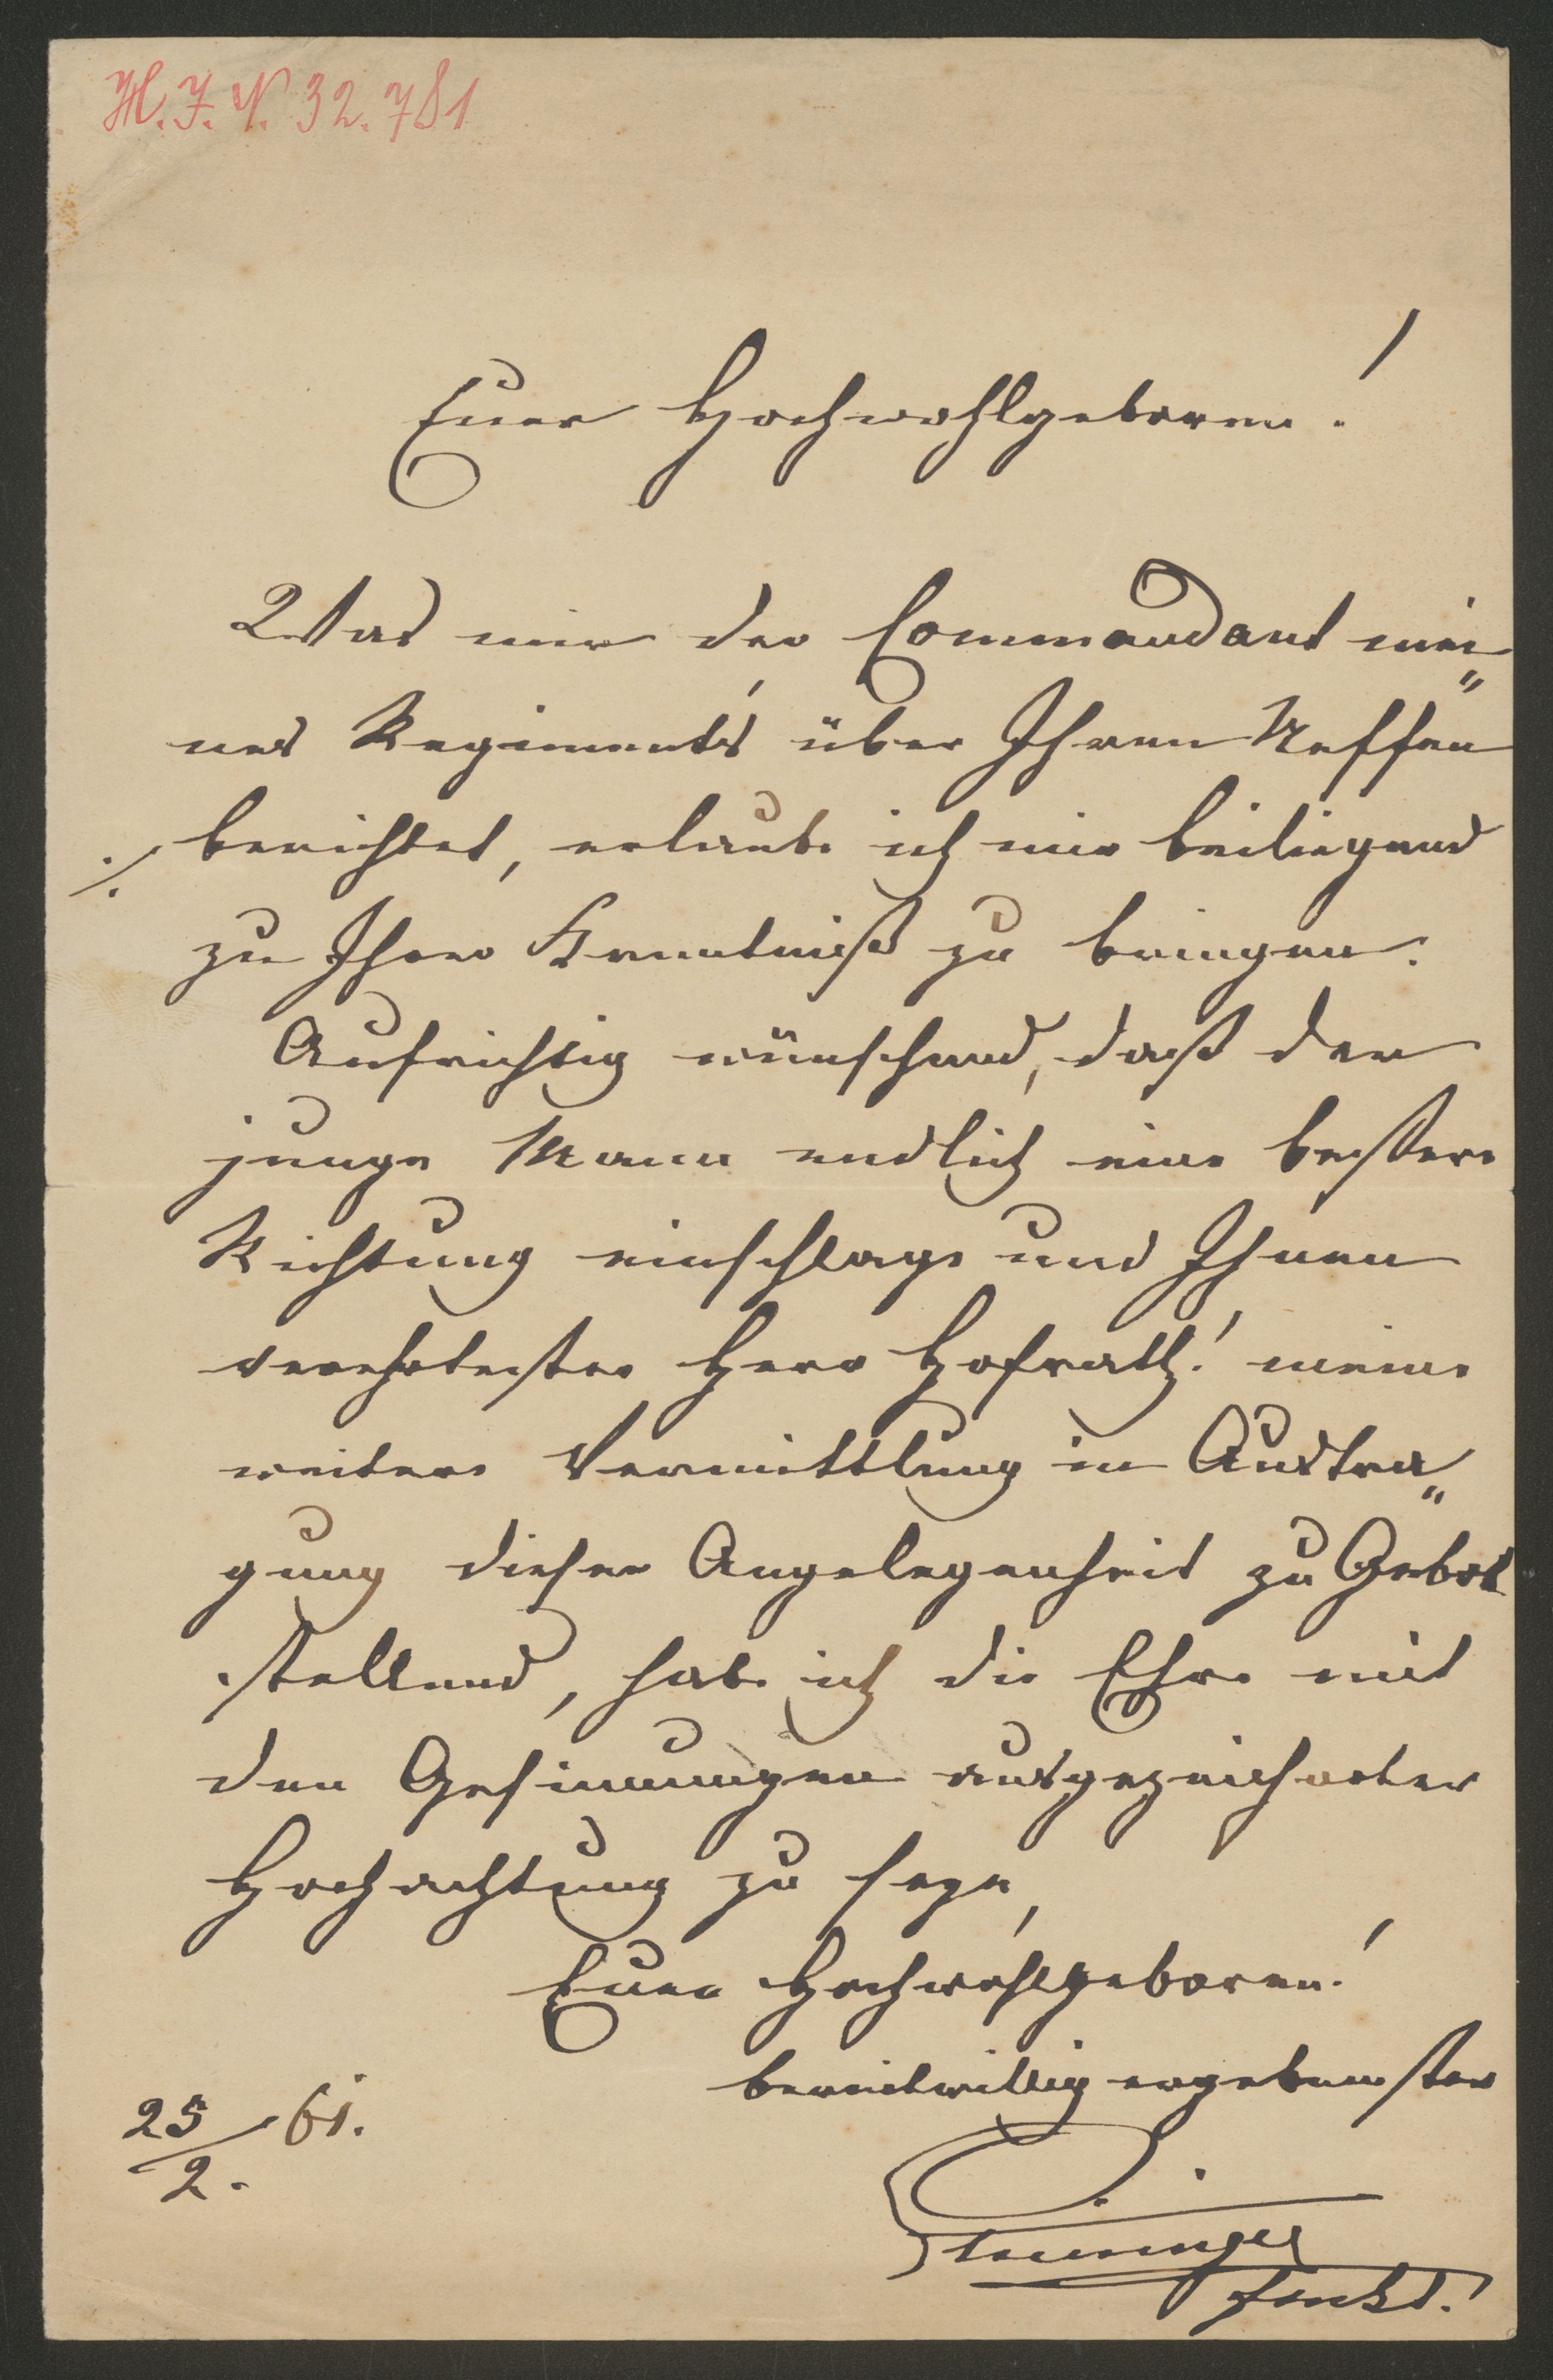 H.I.N. 32.781
Euer Hochwohlgeboren!
Was mir der Commandant mei„
nes Regiments über Ihren Neffen
./. berichtet, erlaube ich mir beiliegend
zu Ihrer Kenntniß zu bringen.
Aufrichtig wünschend, daß der
junge Mann endlich eine bessere
Richtung einschlage und Ihnen
verehrtester Herr Hofrath! meine
weitere Vermittlung in Austra„
gung dieser Angelegenheit zu Gebot
stellend, habe ich die Ehre mit
den Gesinnungen ausgezeichneter
Hochachtung zu seyn,
Euer Hochwohlgeboren!
bereitwillig ergebenster
25/2. 61.